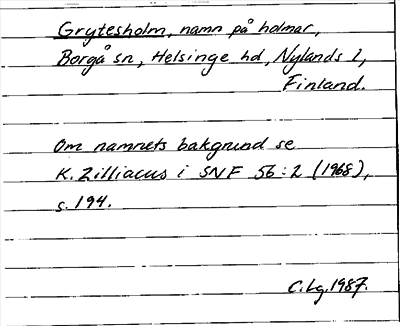 Grytesholm, namn på holmar,
Borgå sn, Helsinge hd, Nylands l,
Finland.
Om namnets bakgrund se
K. Zilliacus i SNF 56:2 (1968),
s. 194.
C.Lg.1987.